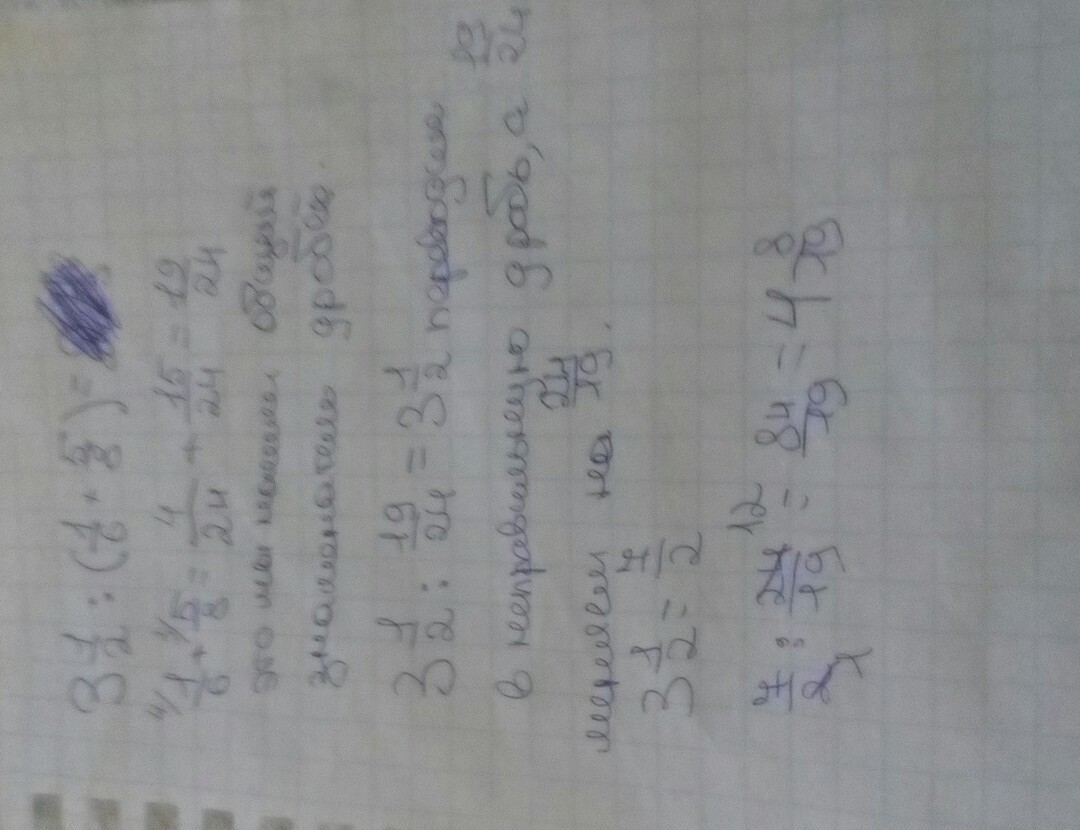 3 1/2 : (1/6 + 5/8) =
4/ 1/6 + 3/ 5/8 = 4/24 + 15/24 = 19/24
это мы нашли общий
знаменатель дробей.
3 1/2 : 19/24 = 3 1/2 переводим
в неправильную дробь, а 19/24
меняем на 24/19.
3 1/2 = 7/2
7/2 1 : 24/19 12 = 84/19 = 4 8/19